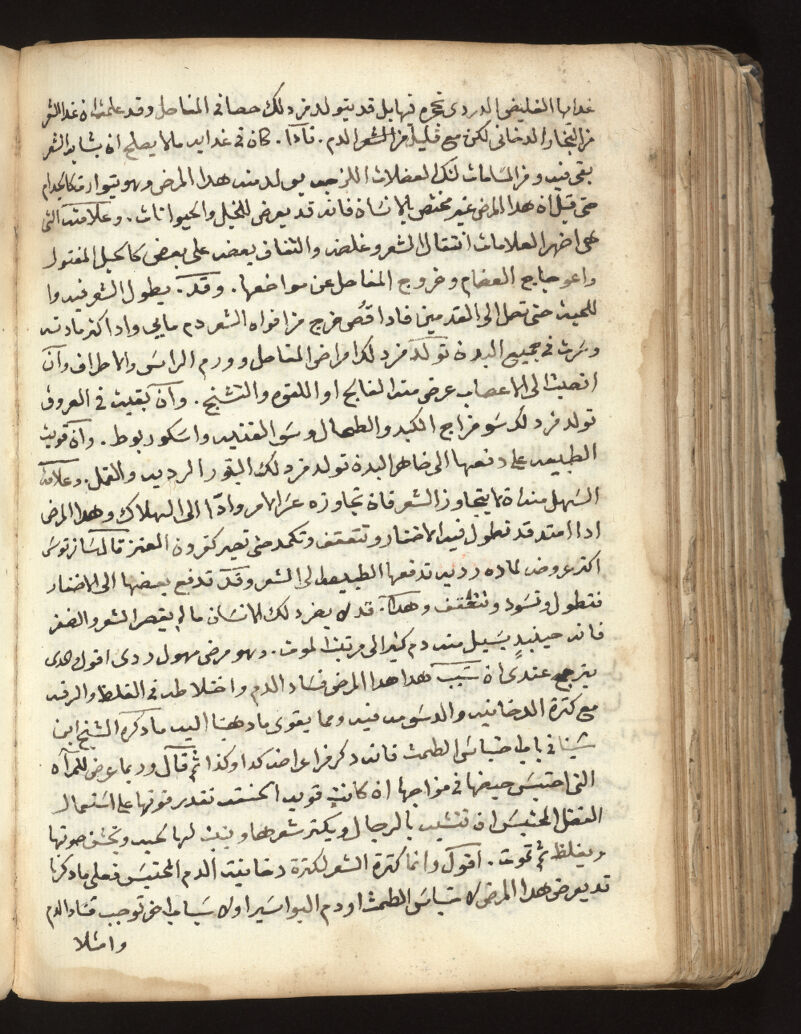 غداىها الغليضى الدردى تحجره فيها بل قد يتولد من دلك حصا فى المفاصل وقد علمت ان غدا الشعر
من البخار الدخانى لكن مع قليل من الدم . فادا . كان فى غدايه مالا يصلح ان يشابه الشعر
بقى فيه ومن المسامات لتلك العضلات اللزجه يولد منه هدا المرض وهو يتوارث كالجدام
حتى قيل ان هدا المرض غير مختص بالانسان فانه قد يعرض للخيل والحيوانات . وعلامته التى
هى اضهر العلامات انتقال الشعر وغلضه والتفاف بعضه على بعض كالحبل المفتول
واعوجاج العضام وخروج المفاصل عن مواضعها . وقد . يطول الشعر فيه وا
للحيه حتى تصل الى القدمين فادا قص خرج من افواه الشعر دم مايى وادا كتر مادته
وسرت فى جميع البدن تولد من دلك امراض المفاصل وورم الراس والاطراف وان
انصبت الى الاعصاب عرض منه الفالج او اللقوه والتشنج . وان بقيت فى العروق
تولد من دلك سو مزاج الكبد والطحال وسو القنيه واسكوربوط . وان قويت
الطبيعه على دفعها الى ضاهر البدن تولد من دلك البثور الرديه والقمل . وعلامة
السهل منه ان لا يتجاوز الشعر فان تجاوزه عسر الامر وادا الى الهلاك وهدا المرض
ادا امتد قد تطول فيه الاضفار وتتعقف وتكمد حتى تصير كقرون العنز قال سارتوس
اكتر عروضه لماده رديه تدفعها الطبيعه الى الشعر وقد تدفع بعضها الى الاضفار
فتطول وتسود وتتعقف وهدا . قد لا يضر دلك الانسان مالم يقص الشعر والضفر
فانه حينيد يسيل منه دم كتير الى مرتبة الموت . وهو مرض مهول ردى اقول هدى
يترجح عندى ان سبب هدا هدا المرض فساد الدم واخلاطه فى الغلظ والرقه
مع كترة الدخانيه والدسومه فيه ومما يقوى ما دهبنا اليه ما دكره الشيخ ابن
سينا فى باب احتباس الطمث فانه دكر من اعراضه كدا وكدا ثم قال وربما عرض للمرآه
التى احتبس حيضها فى مزاجها ان كانت قويه الخلقه تقدر قوتها على استعمال
الفضل المحتبس ان تتشبه بالرجال ويكتر شعرها وينبت لها لحيه ويخشن صوتها
ويغلظ ثم تموت . اقول وانما كترة الشعر لكترة دخانية الدم المحتبس فعلى ما دكرنا
قد يعرض هدا المرض لاحتباس الطمث او دم البواسير او لاسباب اخر توجب فساد الدم
وامتلا